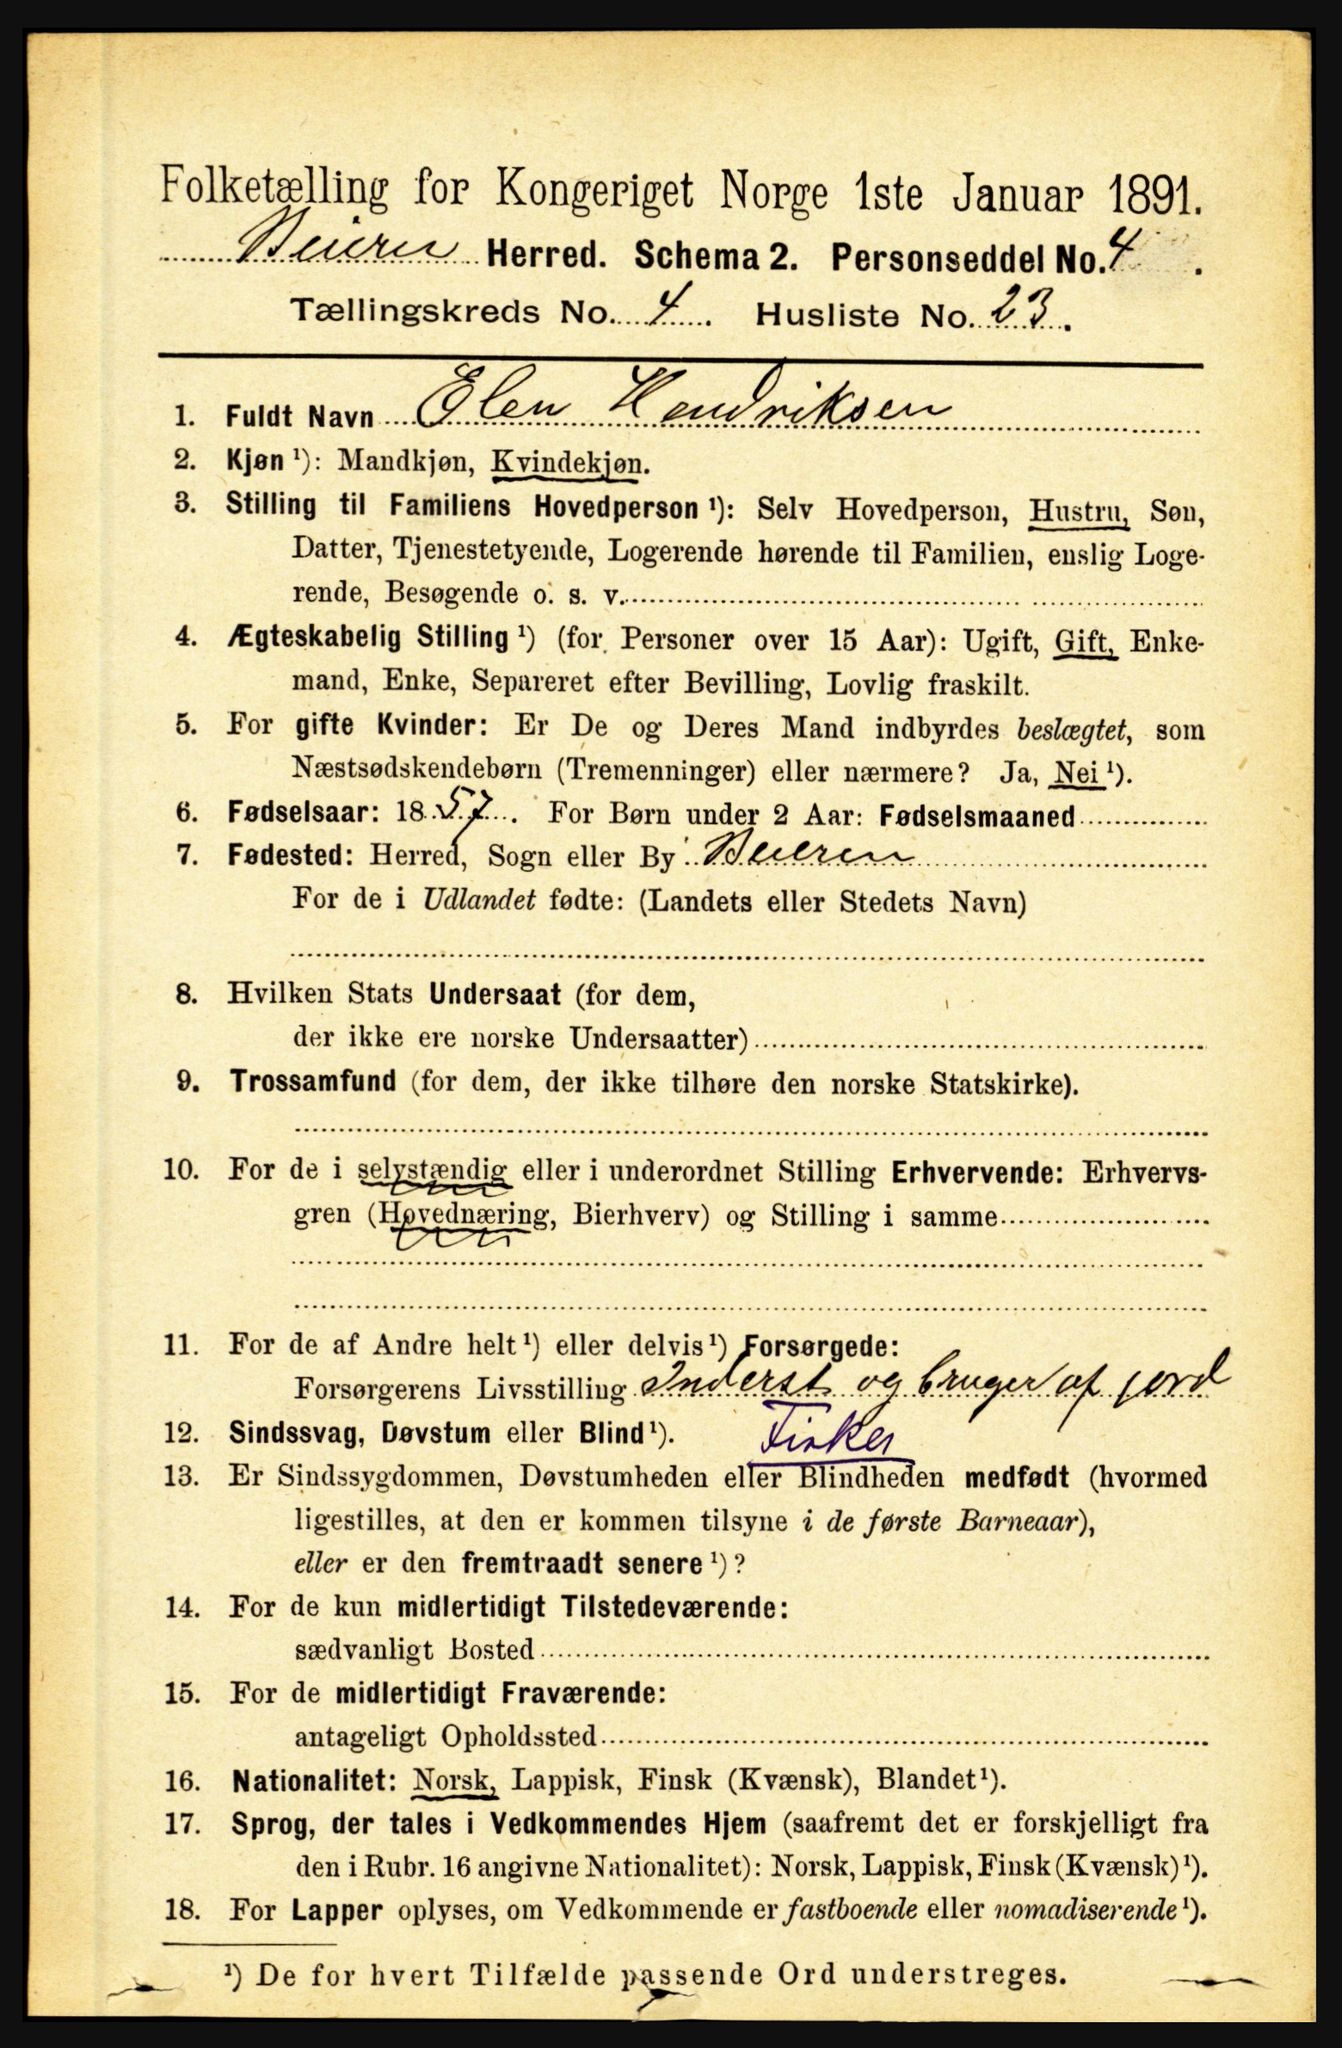 Folketælling for Kongeriget Norge 1ste Januar 1891.
Beiern Herred. Schema 2. Personseddel No. 4.
Tællingskreds No. 4. Husliste No. 23.
1. Fuldt Navn Elen Hendriksen
2. Kjøn ¹): Mandkjøn, Kvindekjøn.
3. Stilling til Familiens Hovedperson ¹): Selv Hovedperson, Hustru, Søn,
Datter, Tjenestetyende, Logerende hørende til Familien, enslig Loge-
rende, Besøgende o. s. v.
4. Ægteskabelig Stilling ¹) (for Personer over 15 Aar): Ugift, Gift, Enke-
mand, Enke, Separeret efter Bevilling, Lovlig fraskilt.
5. For gifte Kvinder: Er De og Deres Mand indbyrdes beslægtet, som
Næstsødskendebørn (Tremenninger) eller nærmere? Ja, Nei ¹).
6. Fødselsaar: 1857. For Børn under 2 Aar: Fødselsmaaned
7. Fødested: Herred, Sogn eller By Beieren
For de i Udlandet fødte: (Landets eller Stedets Navn)
8. Hvilken Stats Undersaat (for dem,
der ikke ere norske Undersaatter)
9. Trossamfund (for dem, der ikke tilhøre den norske Statskirke).
10. For de i selvstændig eller i underordnet Stilling Erhvervende: Erhvervs-
gren (Hovednæring, Bierhverv) og Stilling i samme
11. For de af Andre helt ¹) eller delvis ¹) Forsørgede:
Forsørgerens Livsstilling Inderst og bruger af jord
12. Sindssvag, Døvstum eller Blind ¹). Fisker
13. Er Sindssygdommen, Døvstumheden eller Blindheden medfødt (hvormed
ligestilles, at den er kommen tilsyne i de første Barneaar),
eller er den fremtraadt senere ¹)?
14. For de kun midlertidigt Tilstedeværende:
sædvanligt Bosted
15. For de midlertidigt Fraværende:
antageligt Opholdssted
16. Nationalitet: Norsk, Lappisk, Finsk (Kvænsk), Blandet ¹).
17. Sprog, der tales i Vedkommendes Hjem (saafremt det er forskjelligt fra
den i Rubr. 16 angivne Nationalitet): Norsk, Lappisk, Finsk (Kvænsk) ¹).
18. For Lapper oplyses, om Vedkommende er fastboende eller nomadiserende ¹).
¹) De for hvert Tilfælde passende Ord understreges.